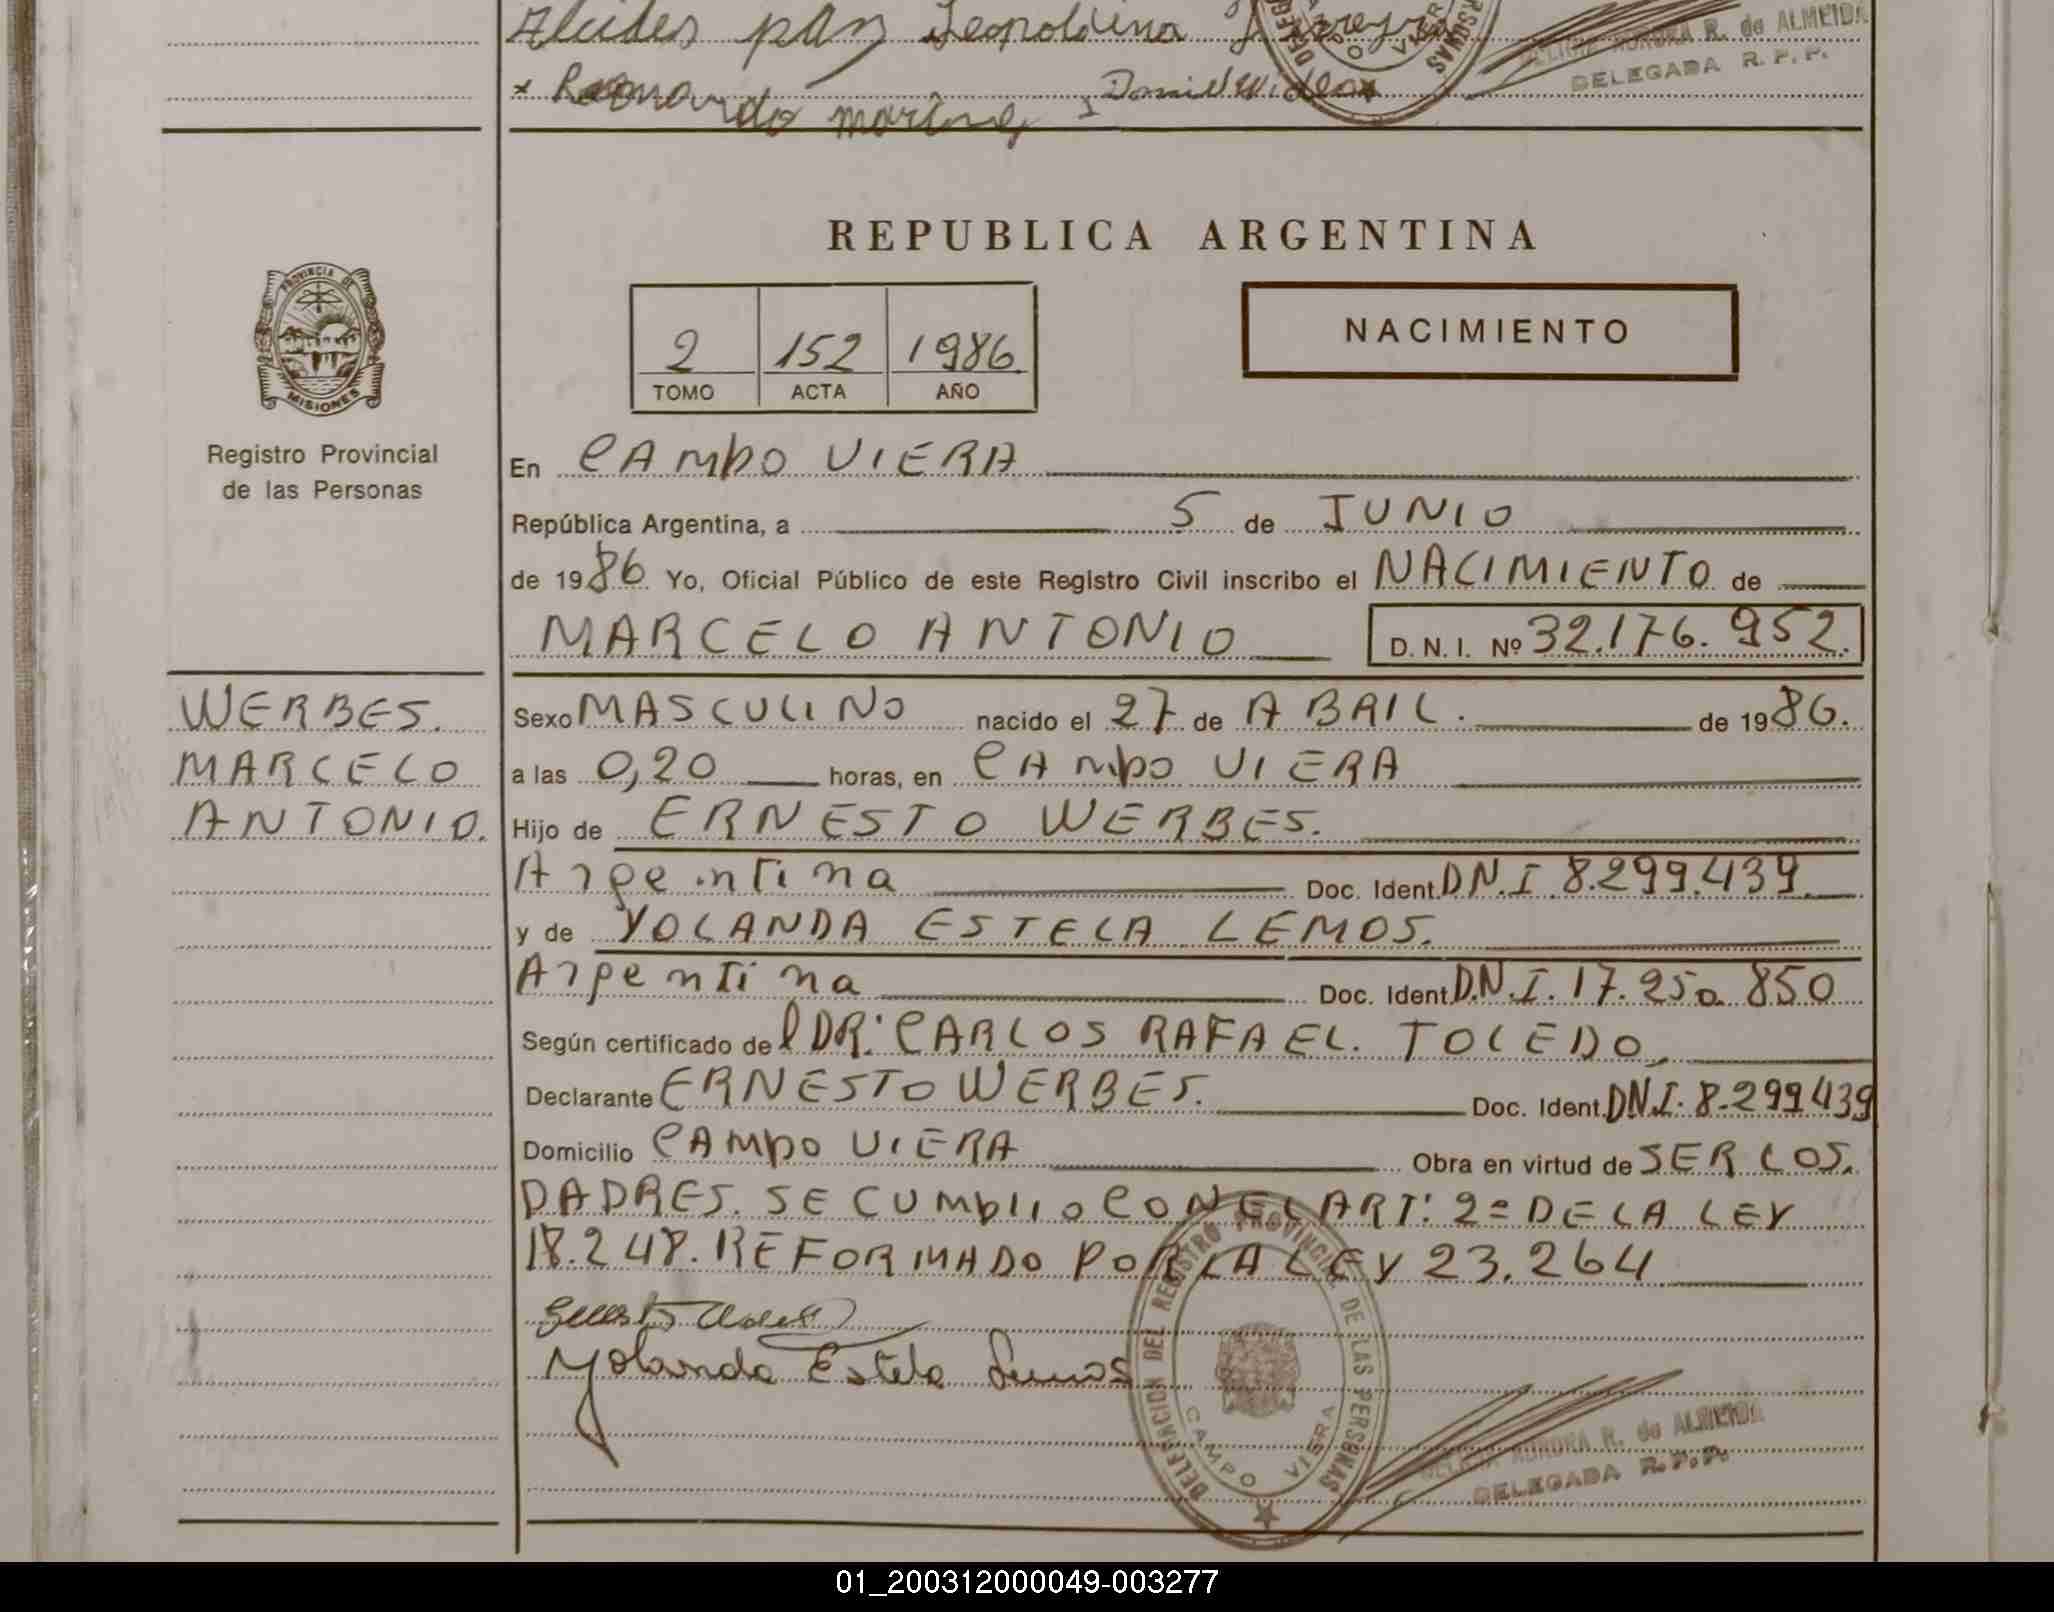 Alcides paz Leopoldina
DELEGADA R. P. P.
R. de ALMEIDA
REPUBLICA ARGENTINA
PROVINCIA DE MISIONES
2 152 1986
TOMO ACTA AÑO
NACIMIENTO
Registro Provincial
de las Personas
En CAMPO VIERA
República Argentina, a 5 de JUNIO
de 1986. Yo, Oficial Público de este Registro Civil inscribo el NACIMIENTO de
MARCELO ANTONIO D. N. I. Nº 32.176.952.
WERBES.
MARCELO
ANTONIO.
Sexo MASCULINO nacido el 27 de ABRIL. de 1986.
a las 0,20 horas, en CAMPO VIERA
Hijo de ERNESTO WERBES.
Argentina Doc. Ident. D.N.I. 8.299.439.
y de YOLANDA ESTELA LEMOS.
Argentina Doc. Ident. D.N.I. 17.950.850
Según certificado del DR: CARLOS RAFAEL. TOLEDO.
Declarante ERNESTO WERBES. Doc. Ident. D.N.I. 8.299439
Domicilio CAMPO VIERA Obra en virtud de SER LOS.
PADRES. SE CUMPLIO CON EL ART: 2º DE LA LEY
18.248. REFORMADO POR LA LEY 23.264
Yolanda Estela Lemos
DELEGACION DEL REGISTRO PROVINCIAL DE LAS PERSONAS
CAMPO VIERA
AURORA R. de ALMEIDA
DELEGADA R. P. P.
01_200312000049-003277